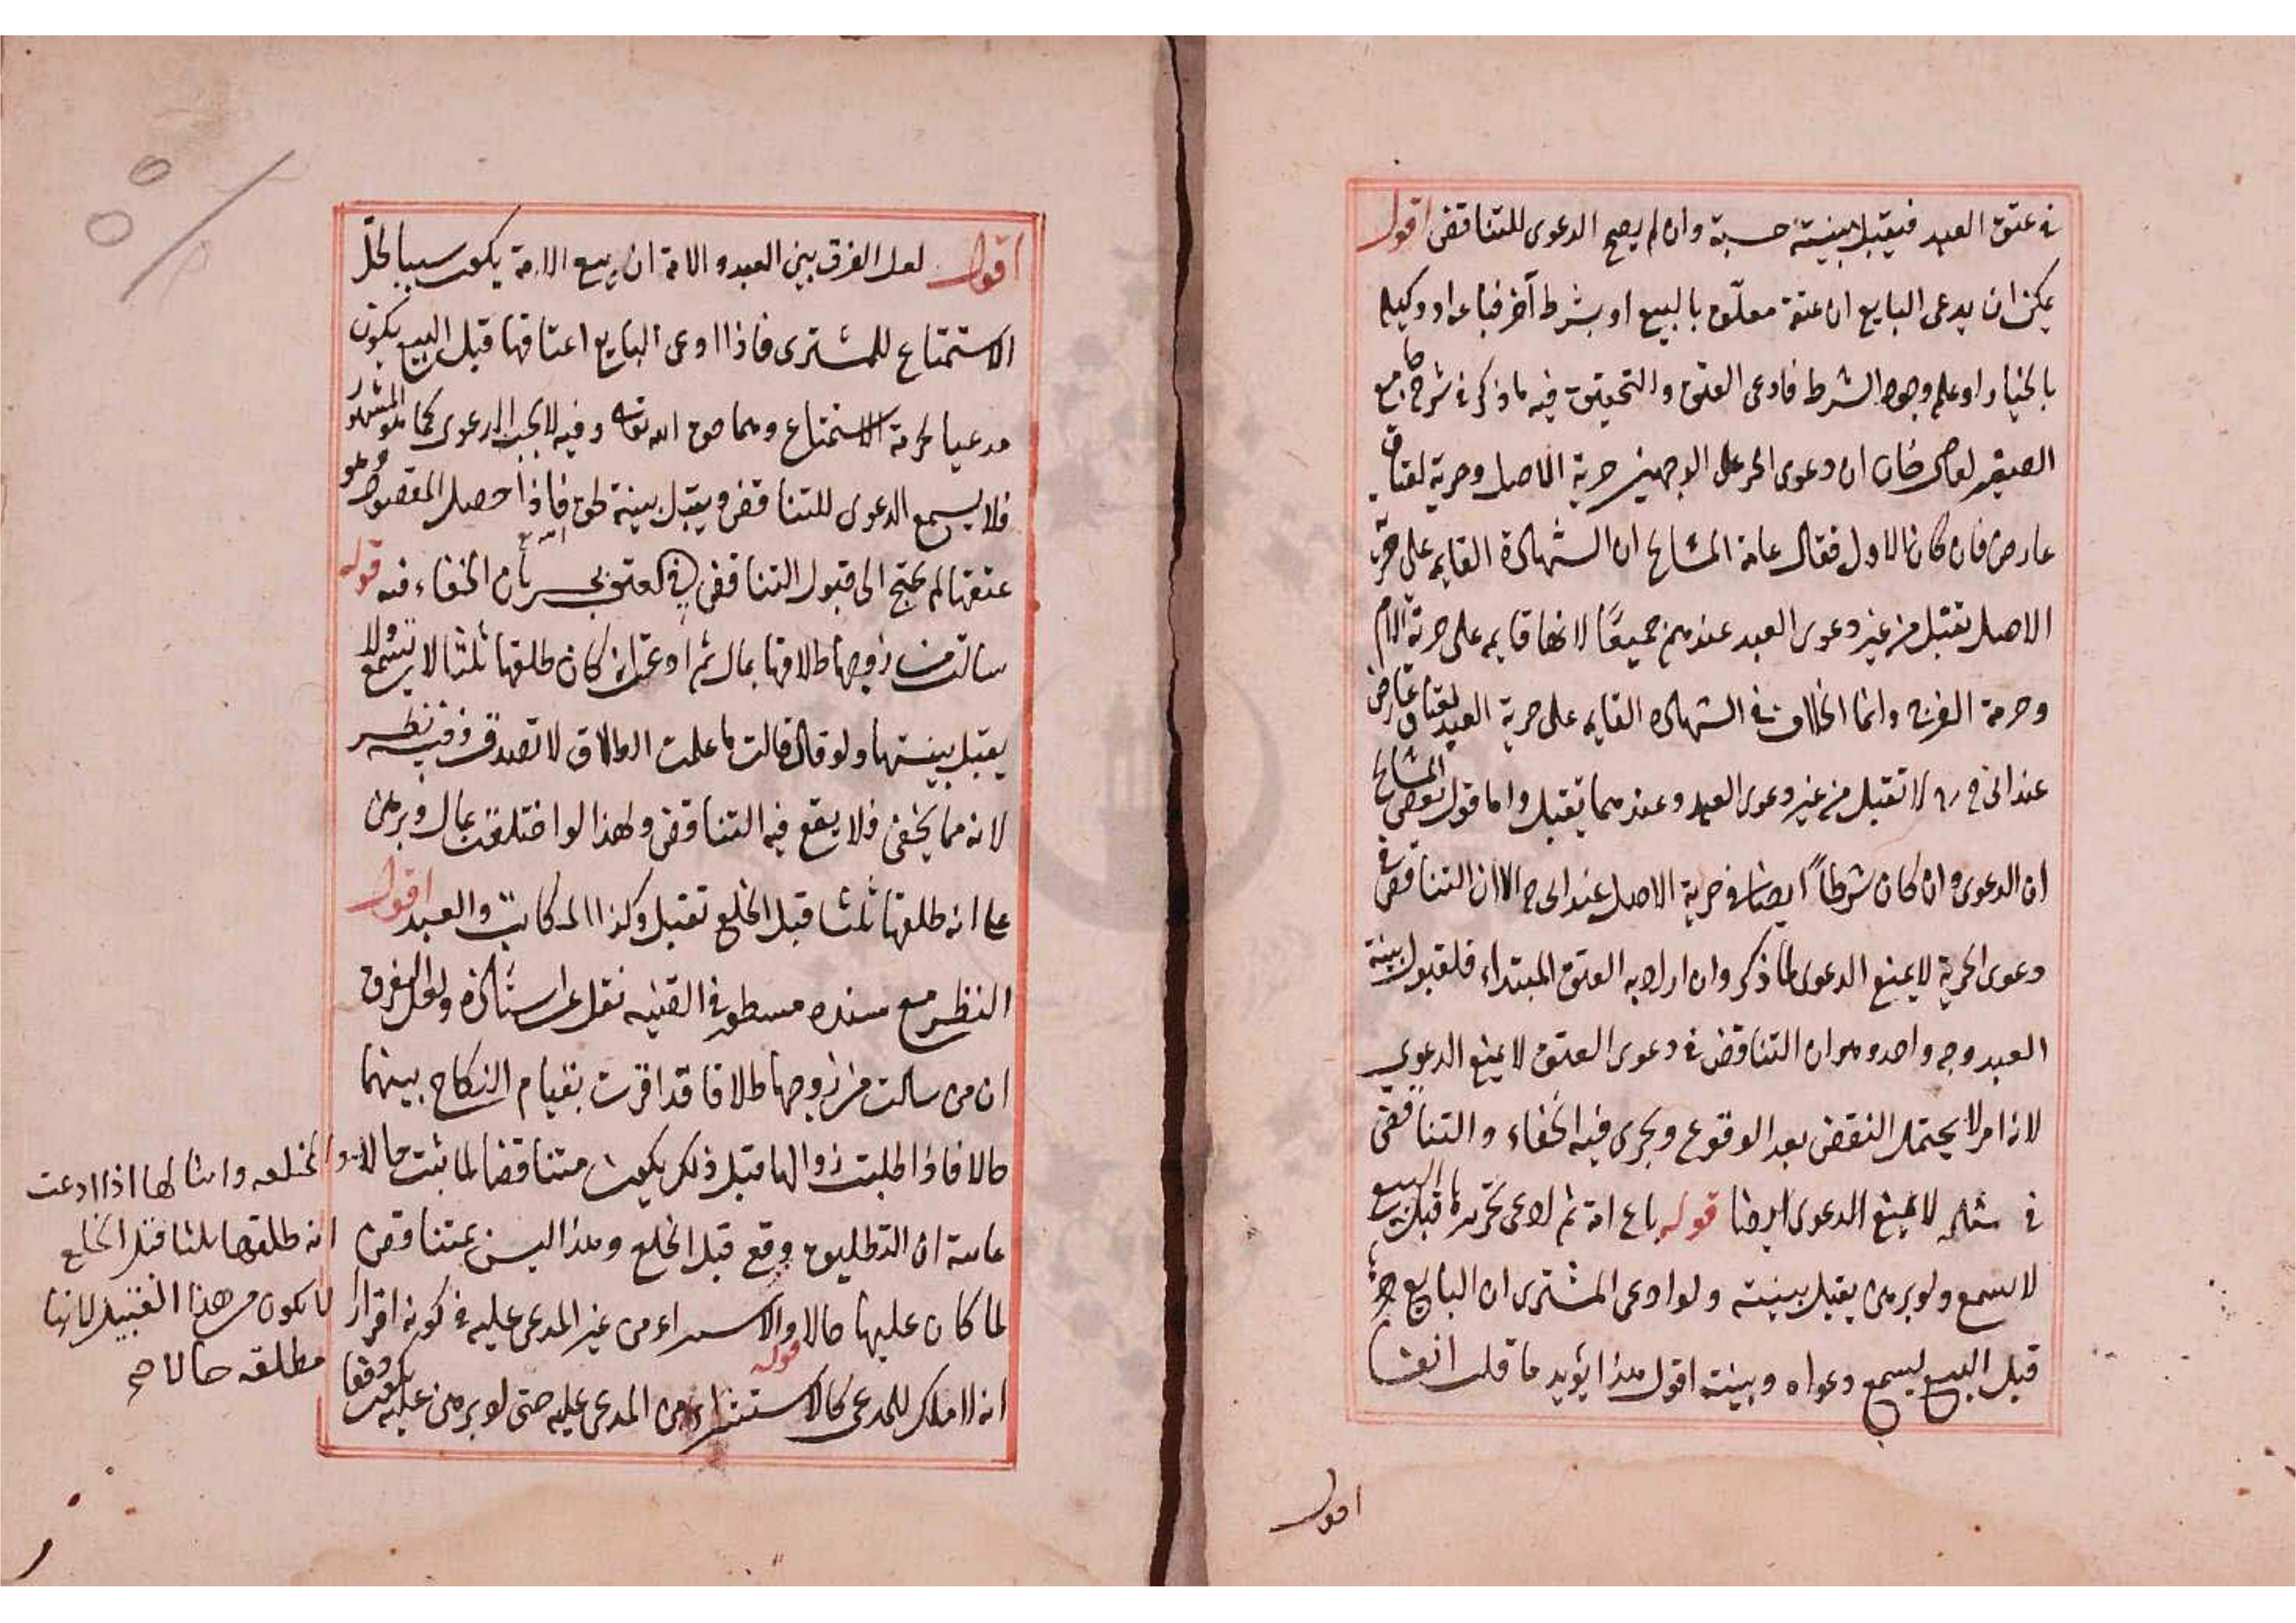 في عتق العبد فيقبل بينته حسبة وان لم يصح الدعوى للتناقض اقول
يمكن ان يدعى البايع ان عتقه معلق بالبيع او بشرط آخر فباع او وكيله
بالخيار او علم وجود الشرط فادعى العتق والتحقيق فيه ما ذكر في شرح جامع
الصغير لقاضى خان ان دعوى الحر على الوجهين حرية الاصل وحرية لعتاق
عارض فان كان الاول فقال عامة المشايخ ان الشهادة القايمة على حرية
الاصل تقبل من غير دعوى العبد عندهم جميعًا لانها قايمه على حرمة الام
وحرمة الفرج وانما الخلاف في الشهاده القايمه على حرية العبد لعتاق عارض
عند ابى ح رح لا تقبل من غير دعوى العبد وعندهما تقبل واما قول بعض المشايخ
ان الدعوى وان كان شرطاً ايضا في حرية الاصل عند ابى ح الا ان التناقض في
دعوى الحرية لا يمنع الدعوى لما ذكر وان اراد به العتق المبتداء فلقبول بينة
العبد وجه واحد وهو ان التناقض في دعوى العتق لا يمنع الدعوى
لانه امر لا يحتمل النقض بعد الوقوع ويجرى فيه الخفاء والتناقض
في مثله لا يمنع الدعوى ايضا قوله باع امة ثم ادعى تحريرها قبل البيع
لا يسمع ولو برهن يقبل بينته ولو ادعى المشترى ان البايع حررها
قبل البيع يسمع دعواه وبينته اقول هذا يؤيد ما قلت انفا
اقول
اقول لعل الفرق بين العبد والامة ان بيع الامة يكون سببا لحل
الاستمتاع للمشترى فاذا ادعى البايع اعتاقها قبل البيع يكون
مدعيا لحرمة الاستمتاع وهما حق الله تعالى وفيه لا يجب الدعوى كما هو المشهور
فلا يسمع الدعوى للتناقض ويقبل بينة لحق فاذا حصل المقصود وهو
عتقها لم يحتج الى قبول التناقض في العتق بجريان الخفاء فيه قوله
سالت من زوجها طلاقها بمال ثم ادعت انه كان طلقها ثلثا لا تسمع ولا
يقبل بينتها ولو قال قالت ما علمت الطلاق لا تصدق وفيه نظر
لانه مما يخفى فلا يقع فيه التناقض ولهذا لو اختلعت بمال وبرهن
على انه طلقها ثلثا قبل الخلع تقبل وكذا المكاتب والعبد اقول
النظر مع سنده مسطور في القنيه نقل عن استاذه ولعل الفرق
ان من سالت من زوجها طلاقا قد اقرت بقيام النكاح بينهما
حالا فاذا طلبت زوالها قبل ذلك يكون متناقضا لما ثبت حالا
عامة ان التطليق وقع قبل الخلع وهذا ليس بمتناقض
لما كان عليها حالا قوله والاستشراء من غير المدعى عليه في كونه اقرارا
انه لا ملك للمدعى كالاستشراء من المدعى عليه حتى لو برهن عليه يكون دفعا
والمختلعه وامثالها اذا ادعت
انه طلقها ثلثا قبل الخلع
لا يكون من هذا القبيل لانها
مطلقه حالا صح